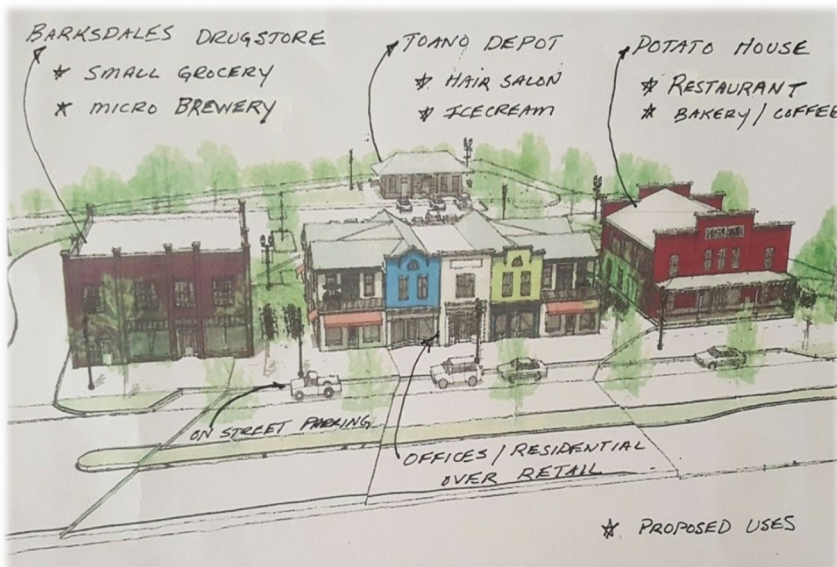 BARKSDALES DRUGSTORE
* SMALL GROCERY
* MICRO BREWERY
TOANO DEPOT
* HAIR SALON
* ICECREAM
POTATO HOUSE
* RESTAURANT
* BAKERY / COFFEE
ON STREET PARKING
OFFICES / RESIDENTIAL
OVER RETAIL
* PROPOSED USES